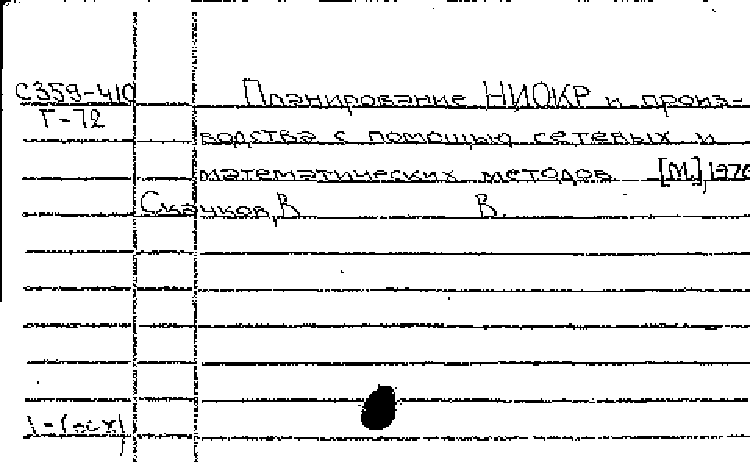 С359-410
Г-72
Планирование НИОКР и произ-
водства с помощью сетевых и
математических методов [М.], 1970
Скачков, В. В.